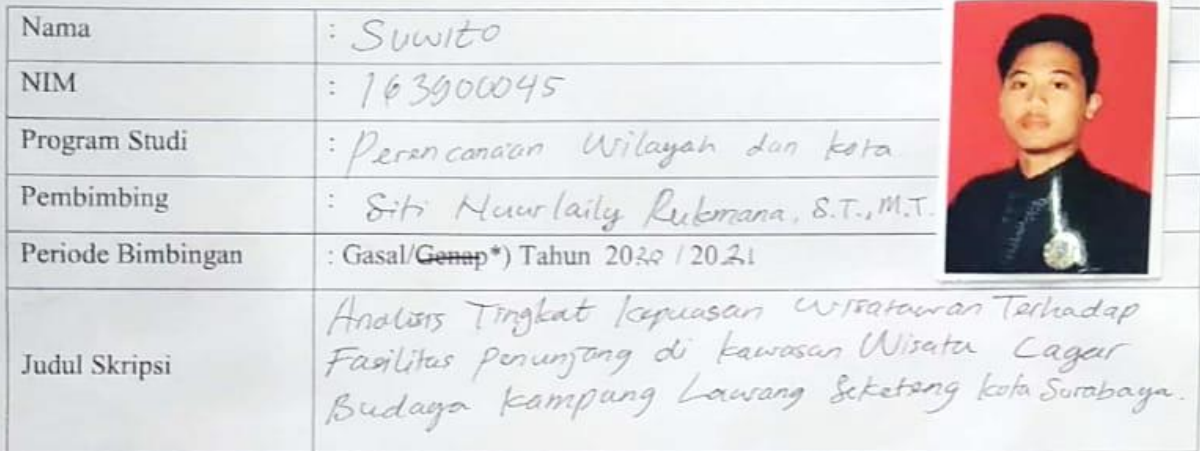 Nama : Suwito
NIM : 163900045
Program Studi : Perencanaan Wilayah dan kota
Pembimbing : Siti Nuurlaily Rukmana, S.T., M.T.
Periode Bimbingan : Gasal/Genap*) Tahun 2020 / 2021
Judul Skripsi
Analisis Tingkat kepuasan wisatawan Terhadap
Fasilitas penunjang di kawasan Wisata Cagar
Budaya kampung Lawang Seketeng kota Surabaya.